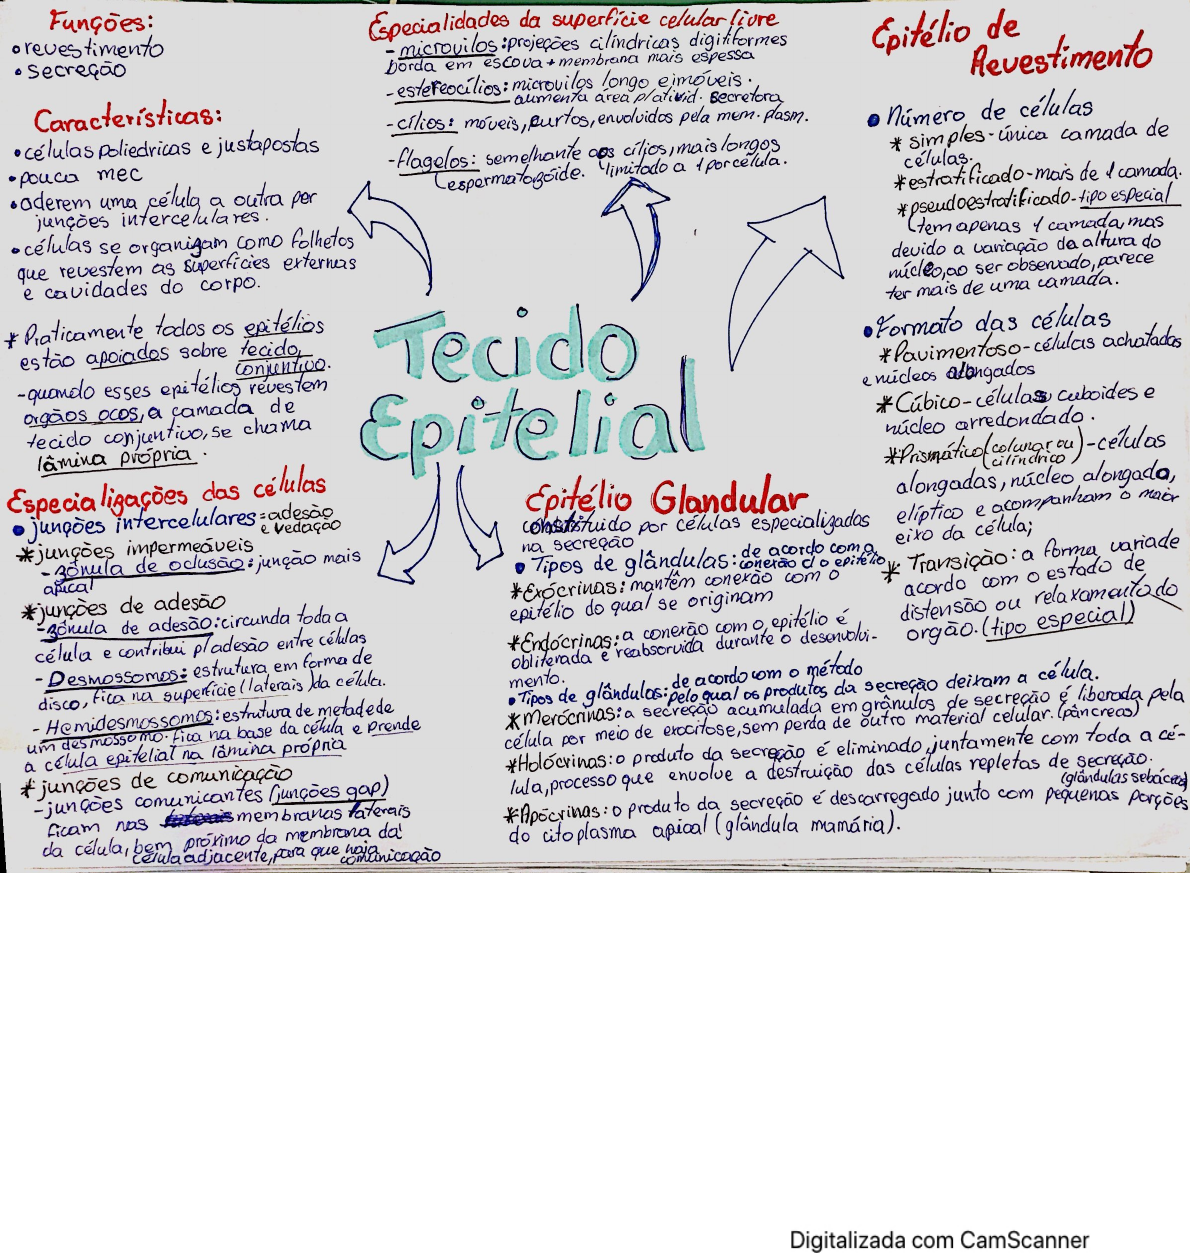 Funções:
• revestimento
• secreção
Características:
• células poliedricas e justapostas
• pouca mec
• aderem uma célula a outra por
junções intercelulares.
• células se organizam como folhetos
que revestem as superfícies externas
e cavidades do corpo.
* Praticamente todos os epitélios
estão apoiados sobre tecido
conjuntivo.
- quando esses epitélios revestem
orgãos ocos, a camada de
tecido conjuntivo, se chama
lâmina própria.
Especializações das células
• junções intercelulares = adesão
e vedação
* junções impermeáveis
- zônula de oclusão: junção mais
apical
* junções de adesão
- zônula de adesão: circunda toda a
célula e contribui p/ adesão entre células
- Desmossomos: estrutura em forma de
disco, fica na superfície (laterais) da célula.
- Hemidesmossomos: estrutura de metade de
um desmossomo. fica na base da célula e prende
a célula epitelial na lâmina própria
* junções de comunicação
- junções comunicantes (junções gap)
ficam nas membranas laterais
da célula, bem próximo da membrana da
célula adjacente, para que haja
comunicação
Especialidades da superfície celular livre
- microvilos: projeções cilíndricas digitiformes
borda em escova + membrana mais espessa
- estereocílios: microvilos longo e imóveis.
aumenta área p/ ativid. secretora
- cílios: móveis, curtos, envolvidos pela mem. plasm.
- flagelos: semelhante aos cílios, mais longos
espermatozóide. limitado a 1 por célula.
Tecido
Epitelial
Epitélio de
Revestimento
• Número de células
* simples - única camada de
células.
* estratificado - mais de 1 camada.
* pseudoestratificado - tipo especial
(tem apenas 1 camada, mas
devido a variação da altura do
núcleo, ao ser observado, parece
ter mais de uma camada.
• Formato das células
* Pavimentoso - células achatadas
e núcleos alongados
* Cúbico - células cuboides e
núcleo arredondado.
* Prismático (colunar ou
cilíndrico) - células
alongadas, núcleo alongado,
elíptico e acompanham o maior
eixo da célula;
* Transição: a forma variade
acordo com o estado de
distensão ou relaxamento do
orgão. (tipo especial)
Epitélio Glandular
constituido por células especializados
na secreção
• Tipos de glândulas: de acordo com a
conexão c/ o epitélio
* Exócrinas: mantém conexão com o
epitélio do qual se originam
* Endócrinas: a conexão com o epitélio é
obliterada e reabsorvida durante o desenvolvi-
mento.
• Tipos de glândulas: de acordo com o método
pelo qual os produtos da secreção deixam a célula.
* Merócrinas: a secreção acumulada em grânulos de secreção é liberada pela
célula por meio de exocitose, sem perda de outro material celular. (pâncreas)
* Holócrinas: o produto da secreção é eliminado juntamente com toda a cé-
lula, processo que envolve a destruição das células repletas de secreção.
(glândulas sebácea)
* Apócrinas: o produto da secreção é descarregado junto com pequenas porções
do citoplasma apical (glândula mamária).
Digitalizada com CamScanner